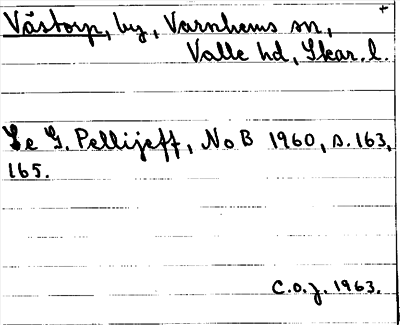 +
Västorp, by, Varnhems sn,
Valle hd, Skar. l.
Se G. Pellijeff, NoB 1960, s. 163,
165.
C.O.J. 1963.